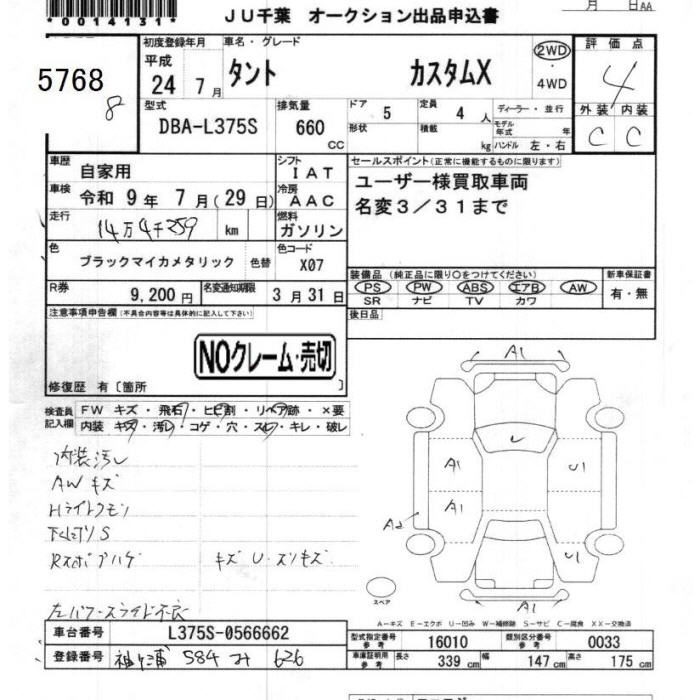 *0014131*
JU千葉 オークション出品申込書
月 日AA
5768
8
初度登録年月 車名・グレード 評価点
平成
24 7月
タント カスタムX
2WD
4WD
4
外装 内装
C C
型式 排気量 ドア 5 定員 4 人 ディーラー・並行
DBA-L375S 660 CC
形状 積載 kg モデル年式 年
ハンドル 左・右
車歴 自家用 シフト IAT
車検 令和 9年 7月(29日) 冷房 AAC
走行 14万4千259 km 燃料 ガソリン
色 ブラックマイカメタリック 色替 色コード X07
R券 9,200円 名変通知期限 3月31日
セールスポイント(正常に機能するものに限ります)
ユーザー様買取車両
名変3/31まで
装備品 (純正品に限り○をつけてください) 新車保証書
PS PW ABS エアB AW 有・無
SR ナビ TV カワ
後日品
注意事項申告欄(不具合内容等は具体的に記入して下さい)
NOクレーム・売切
修復歴 有〔箇所 〕
検査員記入欄
FW キズ・飛石・ヒビ割・リペア跡・×要
内装 キズ・汚レ・コゲ・穴・スレ・キレ・破レ
内装汚レ
AWキズ
HライトクモリS
キズ U・スリキズ
左パワースライド不良
A1
U
A1 U1
A1
A2
U1
A1
スペア
A−キズ E−エクボ U−凹み W−補修跡 S−サビ C−腐食 XX−交換済
車台番号 L375S-0566662
登録番号 袖ヶ浦 584 み 626
型式指定番号 参考 16010 類別区分番号 参考 0033
車庫証明用 参考 長さ 339cm 幅 147cm 高さ 175cm